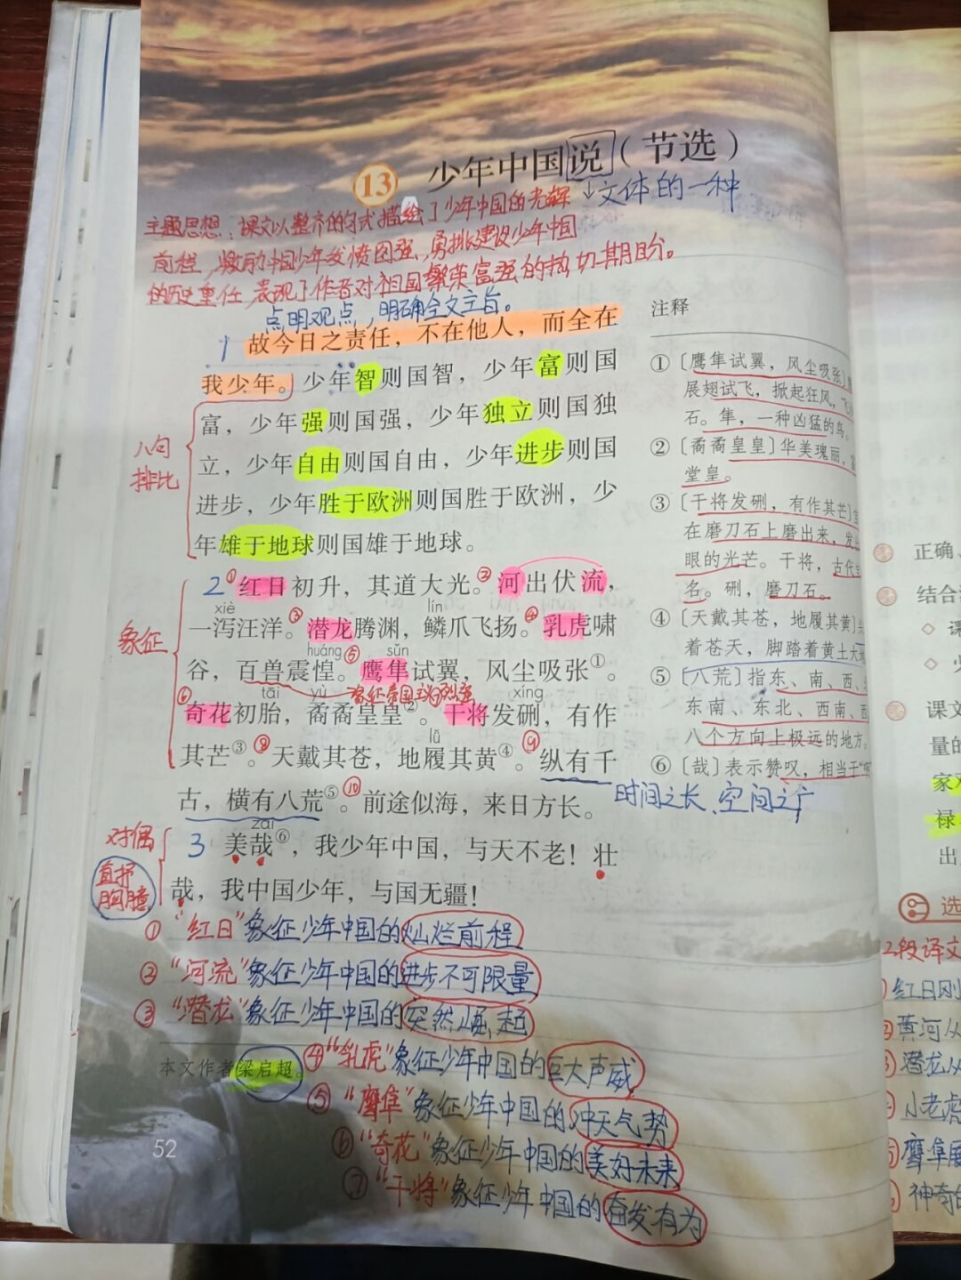 13 少年中国说（节选）
↓文体的一种
主题思想：课文以整齐的句式描绘了少年中国的光辉
前程，激励中国少年发愤图强，勇挑建设少年中国
的历史重任，表现了作者对祖国繁荣富强的热切期盼。
点明观点，明确全文主旨。
1 故今日之责任，不在他人，而全在
我少年。少年智则国智，少年富则国
富，少年强则国强，少年独立则国独
立，少年自由则国自由，少年进步则国
进步，少年胜于欧洲则国胜于欧洲，少
年雄于地球则国雄于地球。
八句
排比
2 ①红日初升，其道大光。②河出伏流，
xiè lín
一泻汪洋。③潜龙腾渊，鳞爪飞扬。④乳虎啸
huáng sǔn
谷，百兽震惶。⑤鹰隼试翼，风尘吸张①。
象征帝国主义列强
tāi yù xíng
⑥奇花初胎，矞矞皇皇②。干将发硎，有作
lǚ
其芒③。⑧天戴其苍，地履其黄④。⑨纵有千
古，横有八荒⑤。⑩前途似海，来日方长。
时间之长、空间之广
象征
zāi
3 美哉⑥，我少年中国，与天不老！壮
哉，我中国少年，与国无疆！
对偶
直抒
胸臆
① “红日”象征少年中国的灿烂前程
② “河流”象征少年中国的进步不可限量
③ “潜龙”象征少年中国的突然崛起
④ “乳虎”象征少年中国的巨大声威
⑤ “鹰隼”象征少年中国的冲天气势
⑥ “奇花”象征少年中国的美好未来
⑦ “干将”象征少年中国的奋发有为
本文作者梁启超。
52
注释
①〔鹰隼试翼，风尘吸张〕
展翅试飞，掀起狂风，飞
石。隼，一种凶猛的鸟。
②〔矞矞皇皇〕华美瑰丽，
堂皇。
③〔干将发硎，有作其芒〕
在磨刀石上磨出来，发
眼的光芒。干将，古代
名。硎，磨刀石。
④〔天戴其苍，地履其黄〕
着苍天，脚踏着黄土大
⑤〔八荒〕指东、南、西、
东南、东北、西南、西
八个方向上极远的地方。
⑥〔哉〕表示赞叹，相当于“
正确、
结合
课文
量的
家
禄
出
选
2段译文
红日刚
黄河从
潜龙从
小老虎
鹰隼展
神奇的